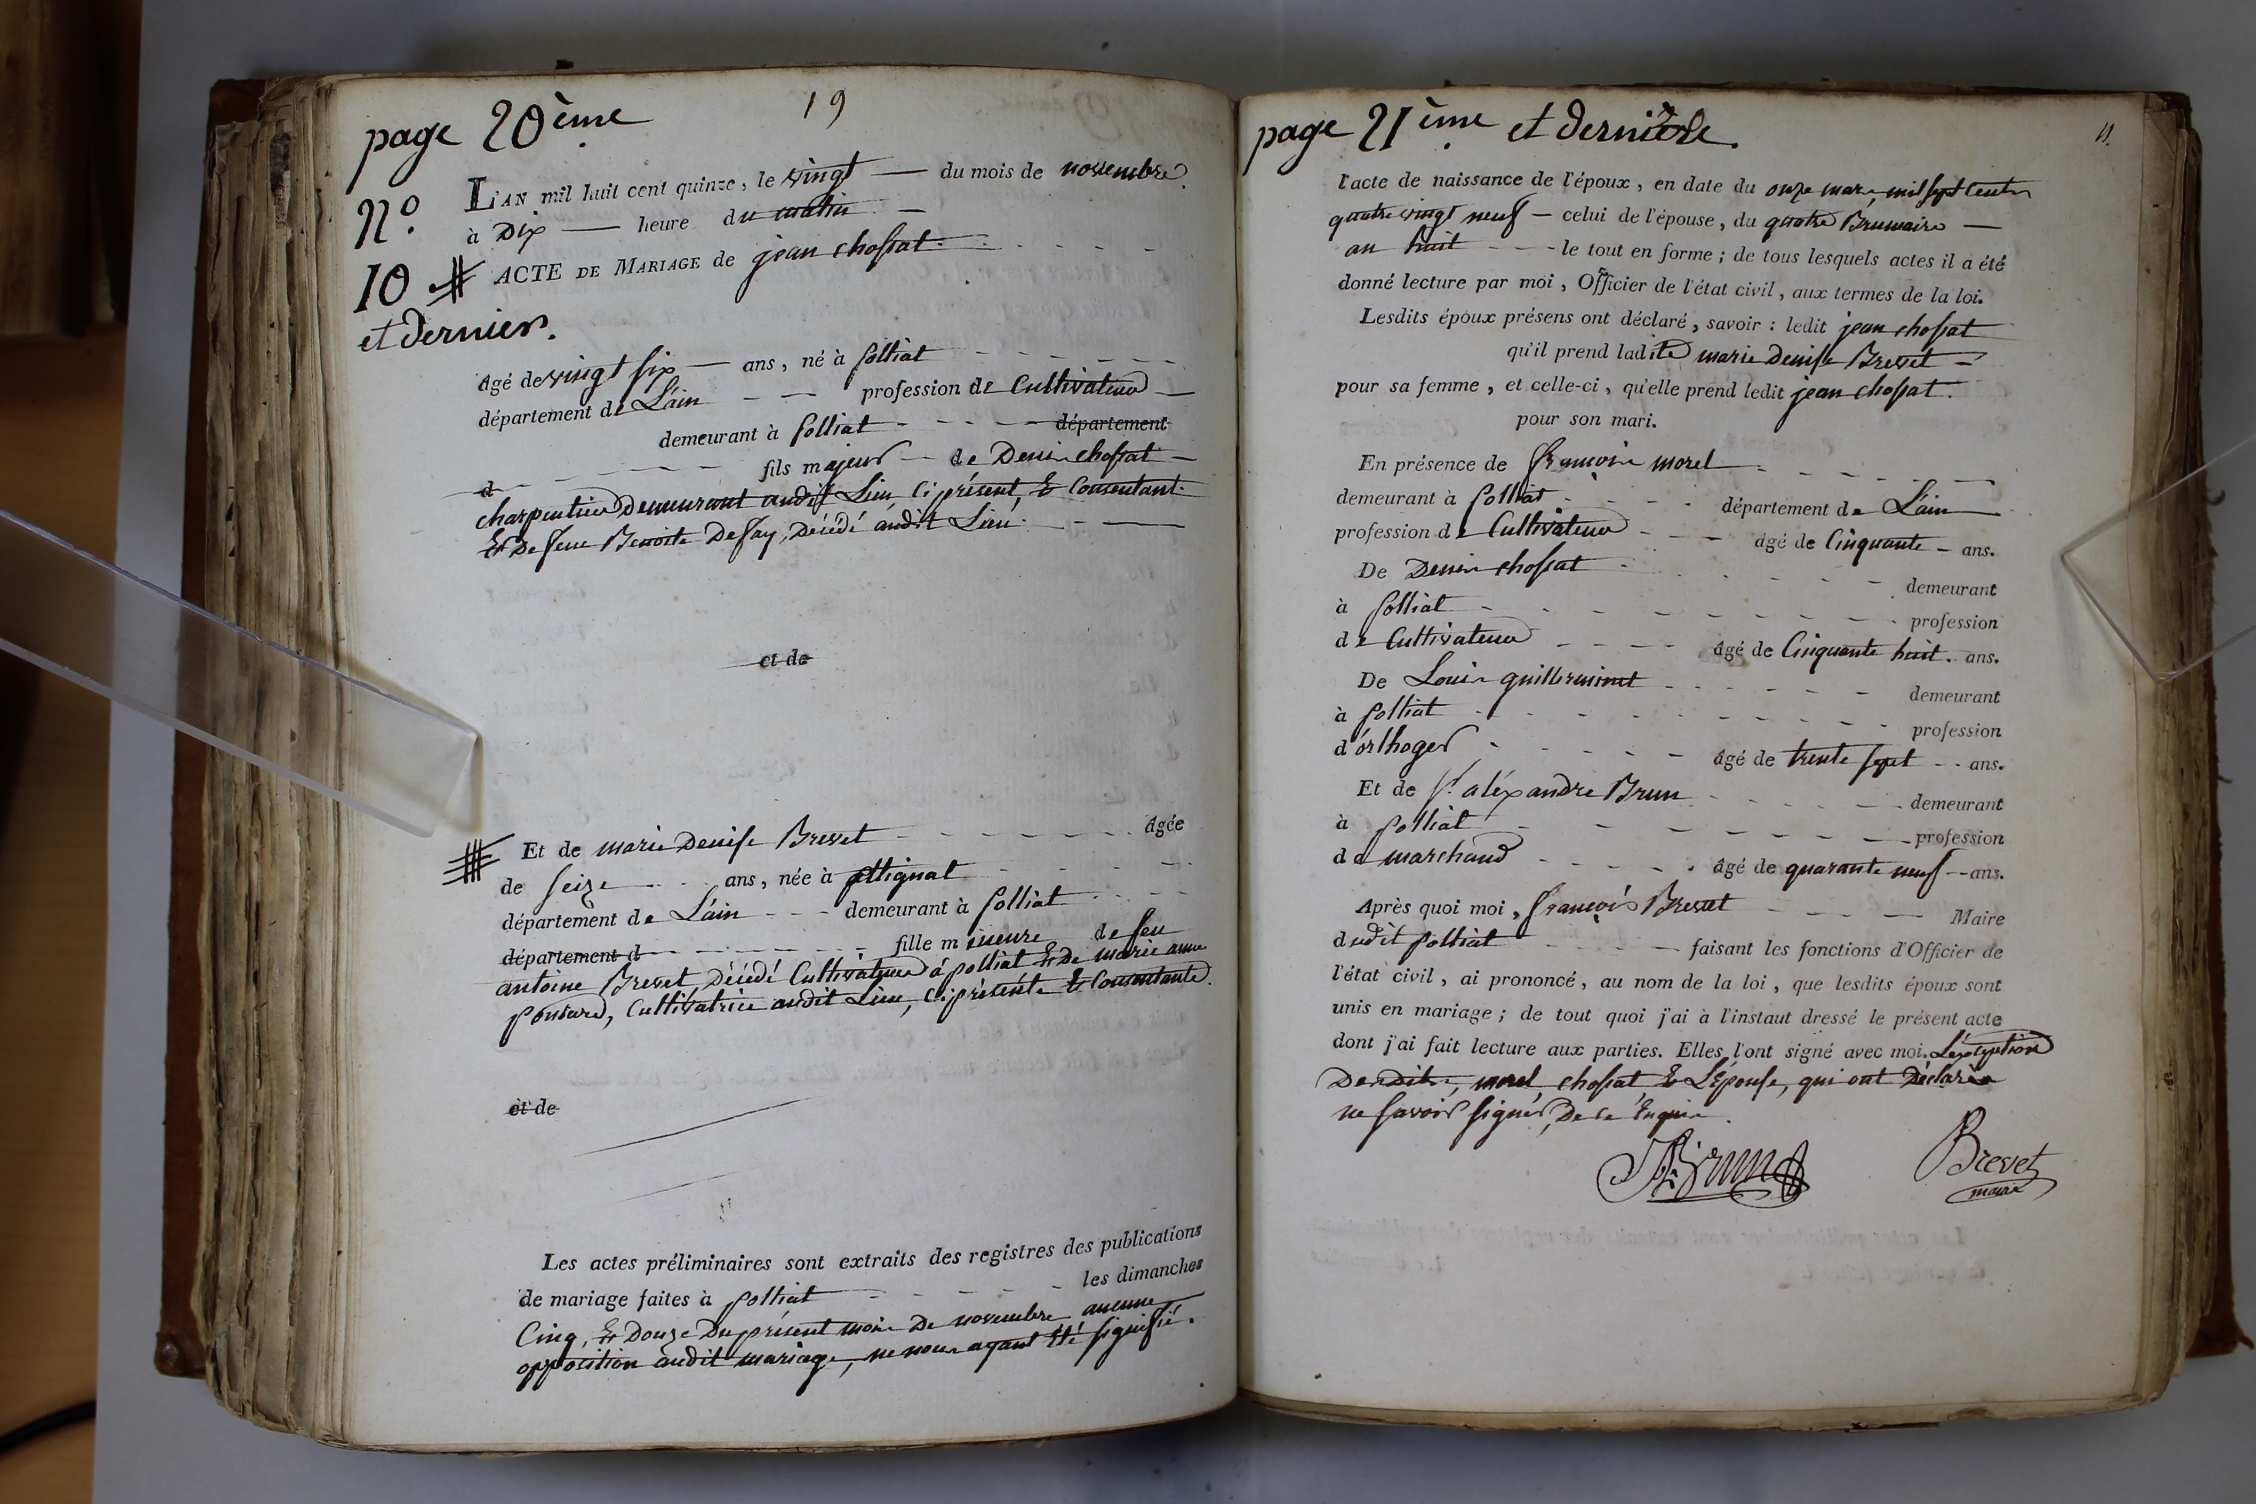 page 20ème
19
N°
10
et dernier.
L'AN mil huit cent quinze, le vingt du mois de novembre
à Dix heure du matin
ACTE DE MARIAGE de jean chossat
âgé de vingt six ans, né à polliat
département de L'ain profession de Cultivateur
demeurant à polliat département
d fils majeur de Denis chossat
charpentier Demeurant audit Lieu Ci présent, & Consentant
& De feue Benoite Defay, Décédé audit Lieu.
et de
Et de marie Denise Brevet âgée
de seize ans, née à attignat
département de L'ain demeurant à polliat
département d fille mineure de feu
antoine Brevet, Décédé Cultivateur à polliat & De marie anne
ponsard, Cultivatrice audit Lieu, Ci présente & Consentante.
et de
Les actes préliminaires sont extraits des registres des publications
de mariage faites à polliat les dimanches
Cinq, & Douze Du présent mois De novembre aucune
opposition audit mariage, ne nous ayant été signifié.
page 21ème et dernière.
l'acte de naissance de l'époux, en date du onze mars, mil sept cents
quatre vingt neuf celui de l'épouse, du quatre Brumaire
an huit le tout en forme; de tous lesquels actes il a été
donné lecture par moi, Officier de l'état civil, aux termes de la loi.
Lesdits époux présens ont déclaré, savoir: ledit jean chossat
qu'il prend ladite marie Denise Brevet
pour sa femme, et celle-ci, qu'elle prend ledit jean chossat.
pour son mari.
En présence de françois morel
demeurant à polliat département de L'ain
profession de Cultivateur âgé de Cinquante ans.
De Denis chossat demeurant
à polliat profession
de Cultivateur âgé de Cinquante huit ans.
De Louis guillerminet demeurant
à polliat profession
d'orlhoger âgé de trente sept ans.
Et de Sr. aléxandre Brun demeurant
à polliat profession
de marchand âgé de quarante neuf ans.
Après quoi moi, françois Brevet Maire
dudit polliat faisant les fonctions d'Officier de
l'état civil, ai prononcé, au nom de la loi, que lesdits époux sont
unis en mariage; de tout quoi j'ai à l'instant dressé le présent acte
dont j'ai fait lecture aux parties. Elles l'ont signé avec moi. L'éxception
Desdits, morel chossat & L'Epouse, qui ont Déclaré
ne savoir signer, De ce Enquis.
Brun
Brevet
maire